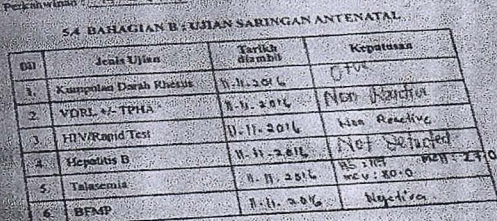 Perkahwinan :
5.4 BAHAGIAN B : UJIAN SARINGAN ANTENATAL
Bil Jenis Ujian Tarikh diambil Keputusan
1. Kumpulan Darah Rhesus 11-11-2016 O +ve
2. VDRL +/- TPHA 11-11-2016 Non Reactive
3. HIV/Rapid Test 11-11-2016 Non Reactive
4. Hepatitis B 11-11-2016 Not Detected
5. Talasemia 11-11-2016 mcv : 80.0
6. BFMP 11-11-2016